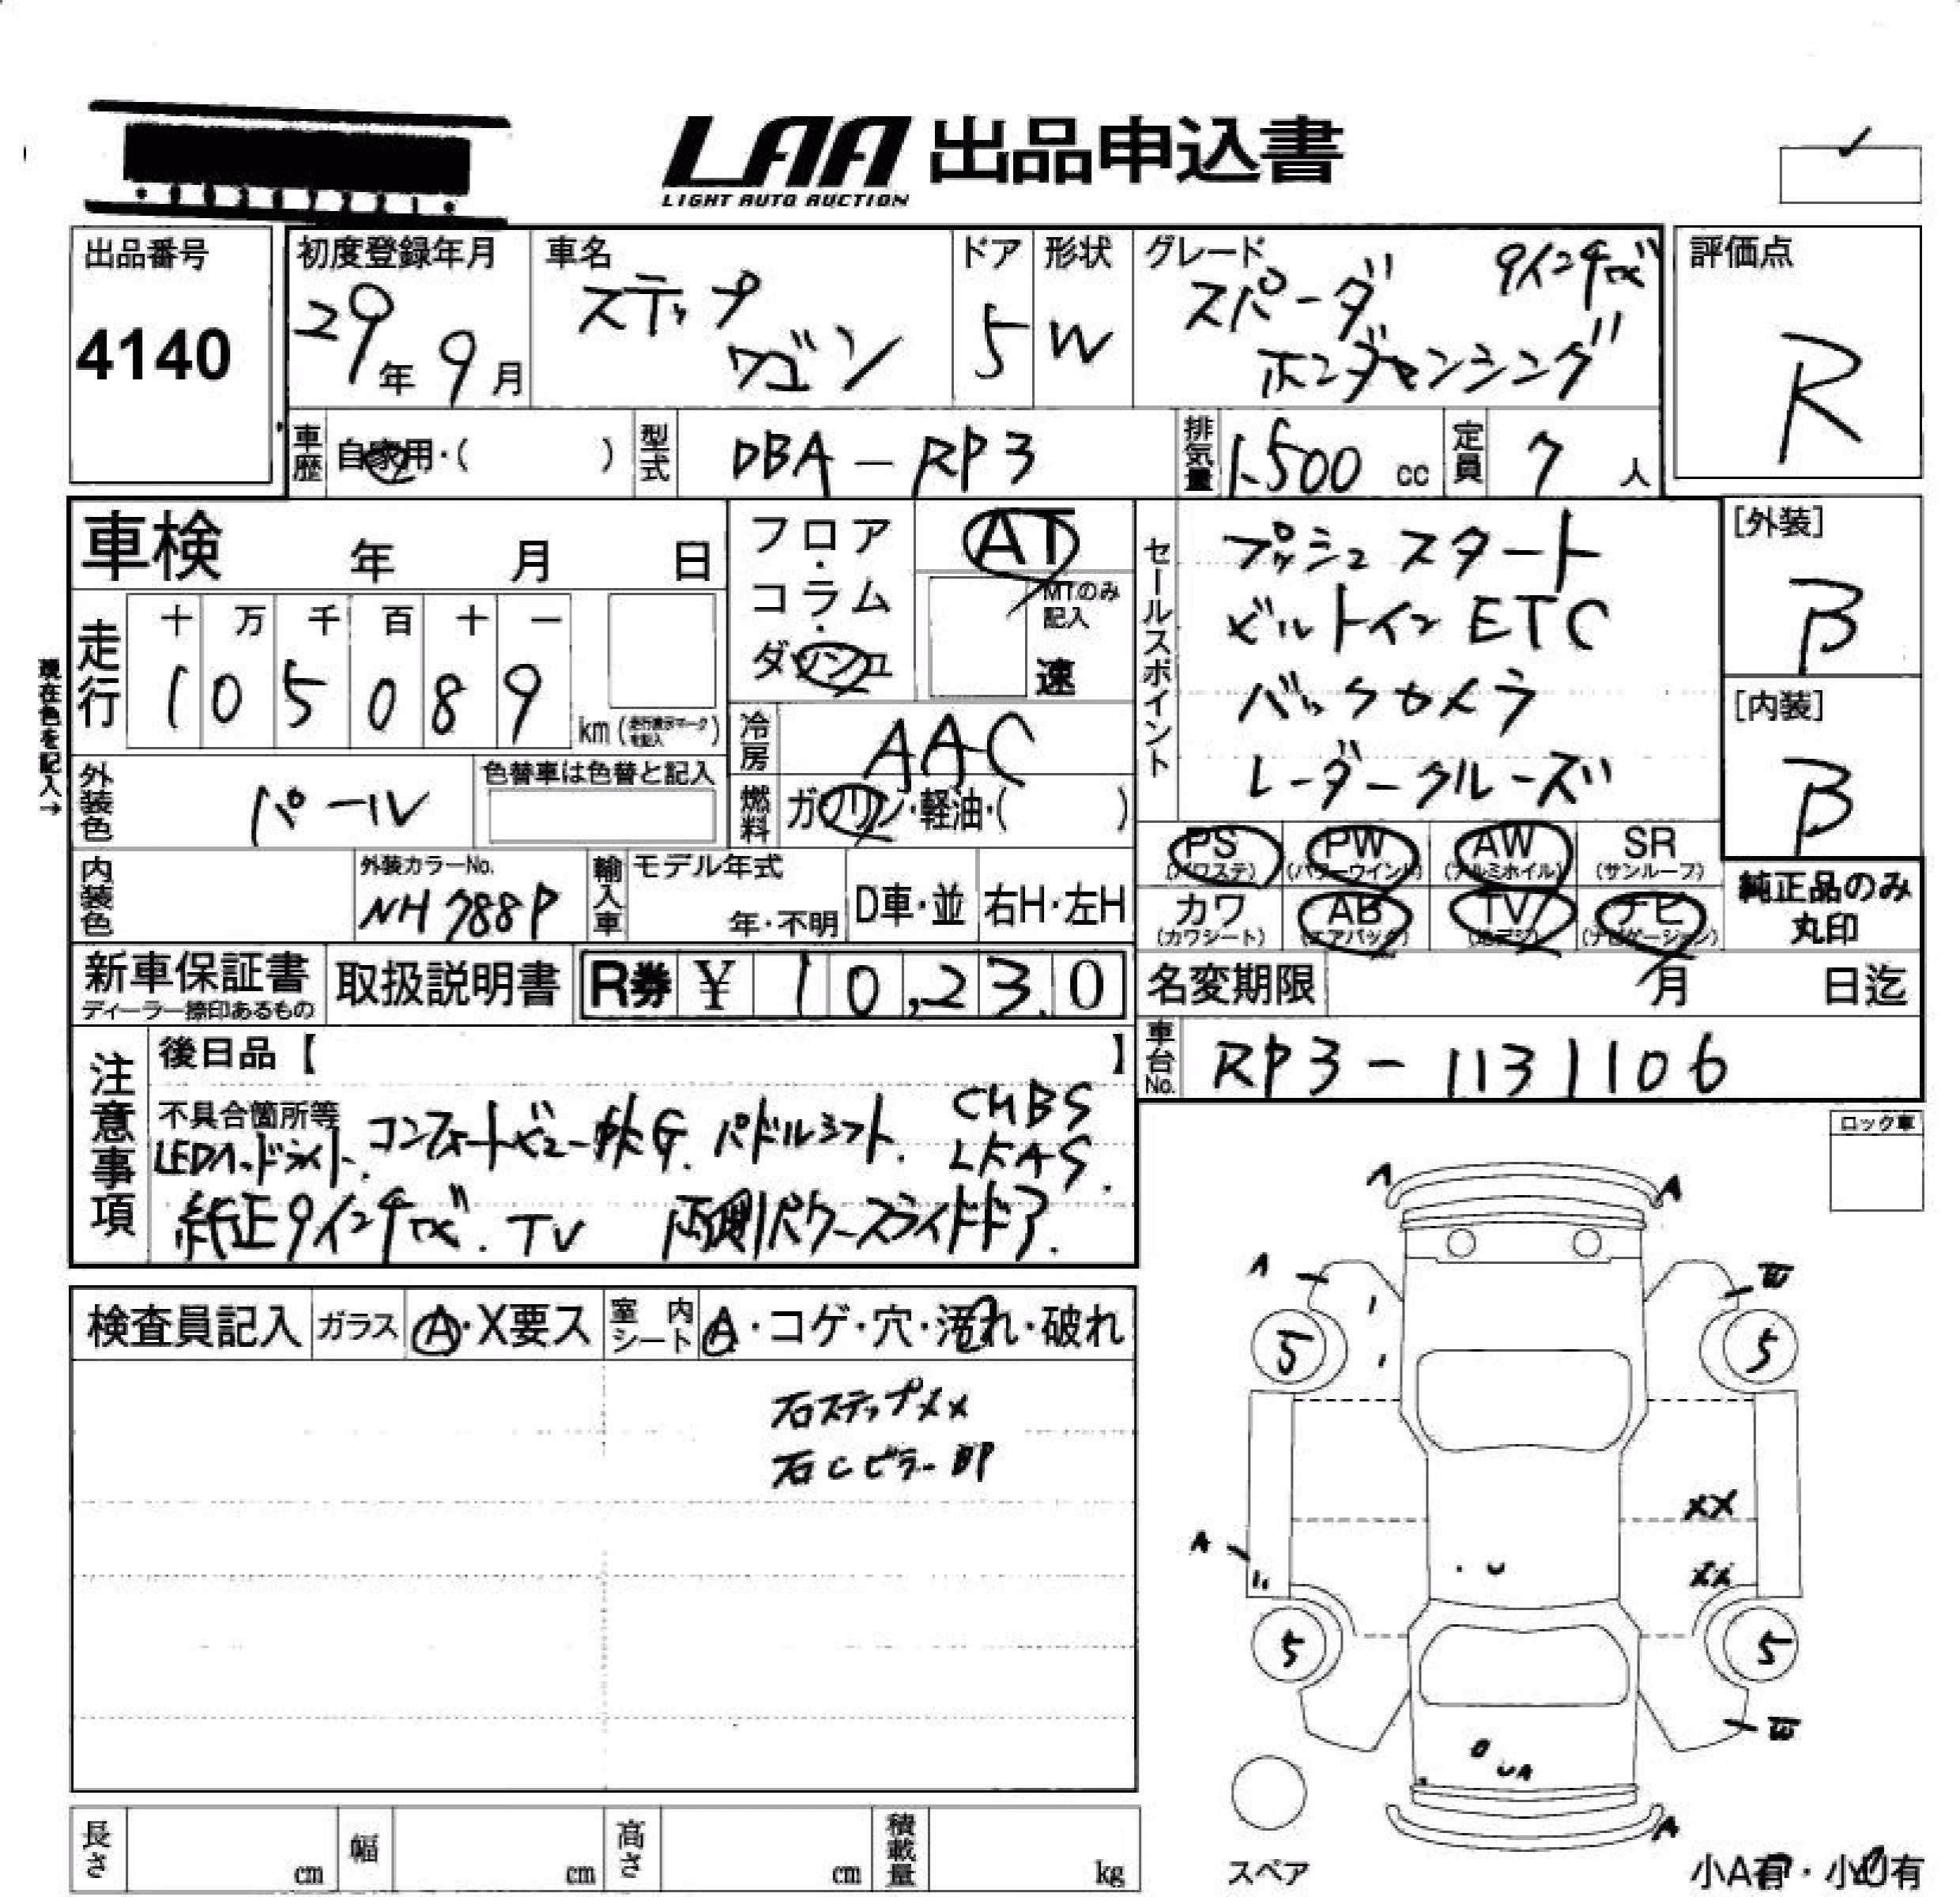 LAA 出品申込書
LIGHT AUTO AUCTION
出品番号
4140
初度登録年月
29年 9月
車名
ステップ
ワゴン
ドア
5
形状
W
グレード
スパーダ 9インチナビ
ホンダセンシング
評価点
R
車歴 自家用・( )
型式 DBA-RP3
排気量 1,500 cc
定員 7 人
車検 年 月 日
フロア・コラム・ダッシュ
AT
MTのみ記入
速
セールスポイント
プッシュスタート
ビルトインETC
バックカメラ
レーダークルーズ
[外装]
B
[内装]
B
現在色を記入→
走行
十 万 千 百 十 一
1 0 5 0 8 9
km (走行表示マークを記入)
冷房 AAC
外装色 パール
色替車は色替と記入
燃料 ガソリン・軽油・( )
PS (パワステ) PW (パワーウインド) AW (アルミホイル) SR (サンルーフ)
カワ (カワシート) AB (エアバック) TV (地デジ) ナビ (ナビゲーション)
純正品のみ
丸印
内装色
外装カラーNo.
NH788P
輸入車 モデル年式
年・不明
D車・並
右H・左H
新車保証書
ディーラー捺印あるもの
取扱説明書
R券 ¥ 10,230
名変期限 月 日迄
車台No. RP3-1131106
注意事項
後日品【 】
不具合箇所等
LEDヘッドライト. コンフォートビューPKG. パドルシフト. CMBS
LKAS.
純正9インチナビ. TV 両側パワースライドドア.
ロック車
検査員記入
ガラス A・X要ス
室内シート A・コゲ・穴・汚れ・破れ
右ステップXX
右Cピラー
A A
A W
5 5
XX
A XX
U
5 5
W
UA
A
スペア
小A有・小U有
長さ cm
幅 cm
高さ cm
積載量 kg